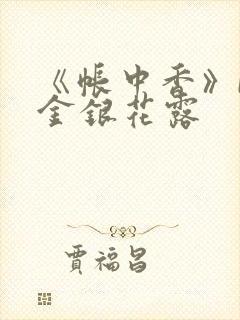 《帐中香》
金银花露
贾福昌